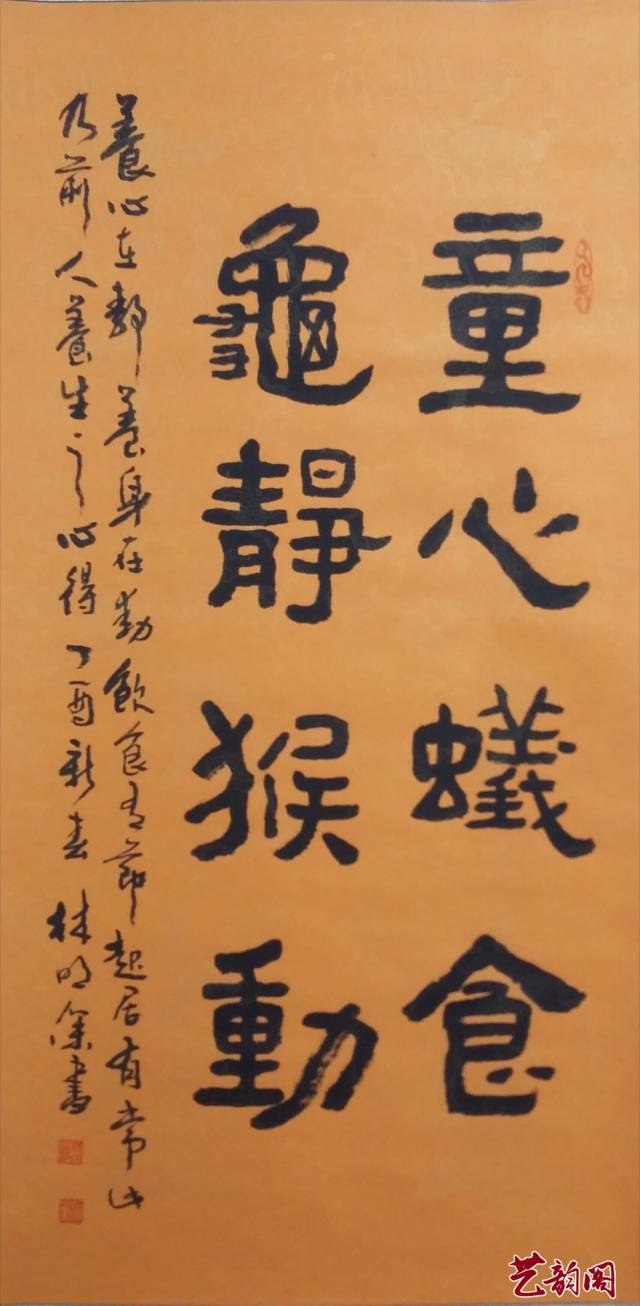 童心蟻食
龜靜猴動
養心在靜養身在動飲食有節起居有常此
乃前人養生之心得丁酉新春林明深書
艺韵阁